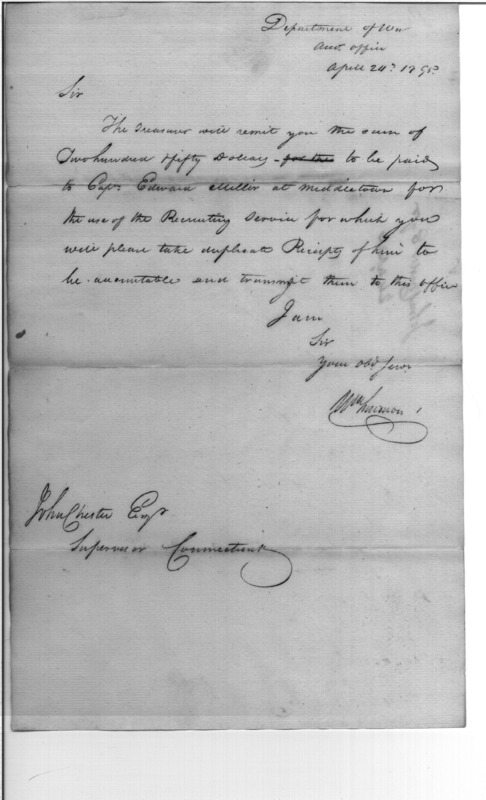 Department of War
Acct office
April 24th 179
Sir
The Treasurer will remit you the sum of
Two hundred & fifty Dollars - for this to be paid
to Capn. Edward Miller at Middletown for
the use of the Recruiting Service for which you
will please take duplicate Receipts of him to
be accountable and transmit them to this office
I am
Sir
Your Obd Servt
Wm Simmons
John Chester Esqr
Supervisor Connecticut